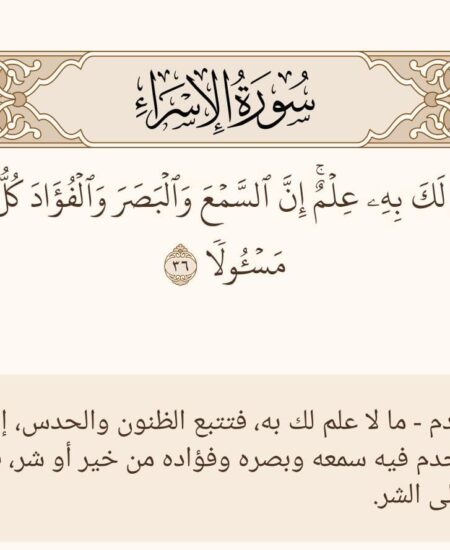 سُورَةُ الإِسۡرَاءِ
لَكَ بِهِۦ عِلۡمٌۚ إِنَّ ٱلسَّمۡعَ وَٱلۡبَصَرَ وَٱلۡفُؤَادَ كُلُّ
مَسۡـُٔولٗا ٣٦
دم - ما لا علم لك به، فتتبع الظنون والحدس، إ
خدم فيه سمعه وبصره وفؤاده من خير أو شر، ف
لى الشر.